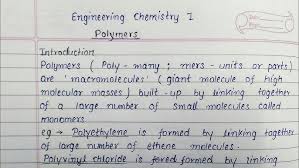 Engineering Chemistry I
Polymers
Introduction
Polymers ( Poly - many ; mers - units or parts)
are 'macromolecules' ( giant molecule of high
molecular masses ) built-up by linking together
of a large number of small molecules called
monomers
eg → Polyethylene is formed by linking together
of large number of ethene molecules.
Polyvinyl chloride is formed by linking